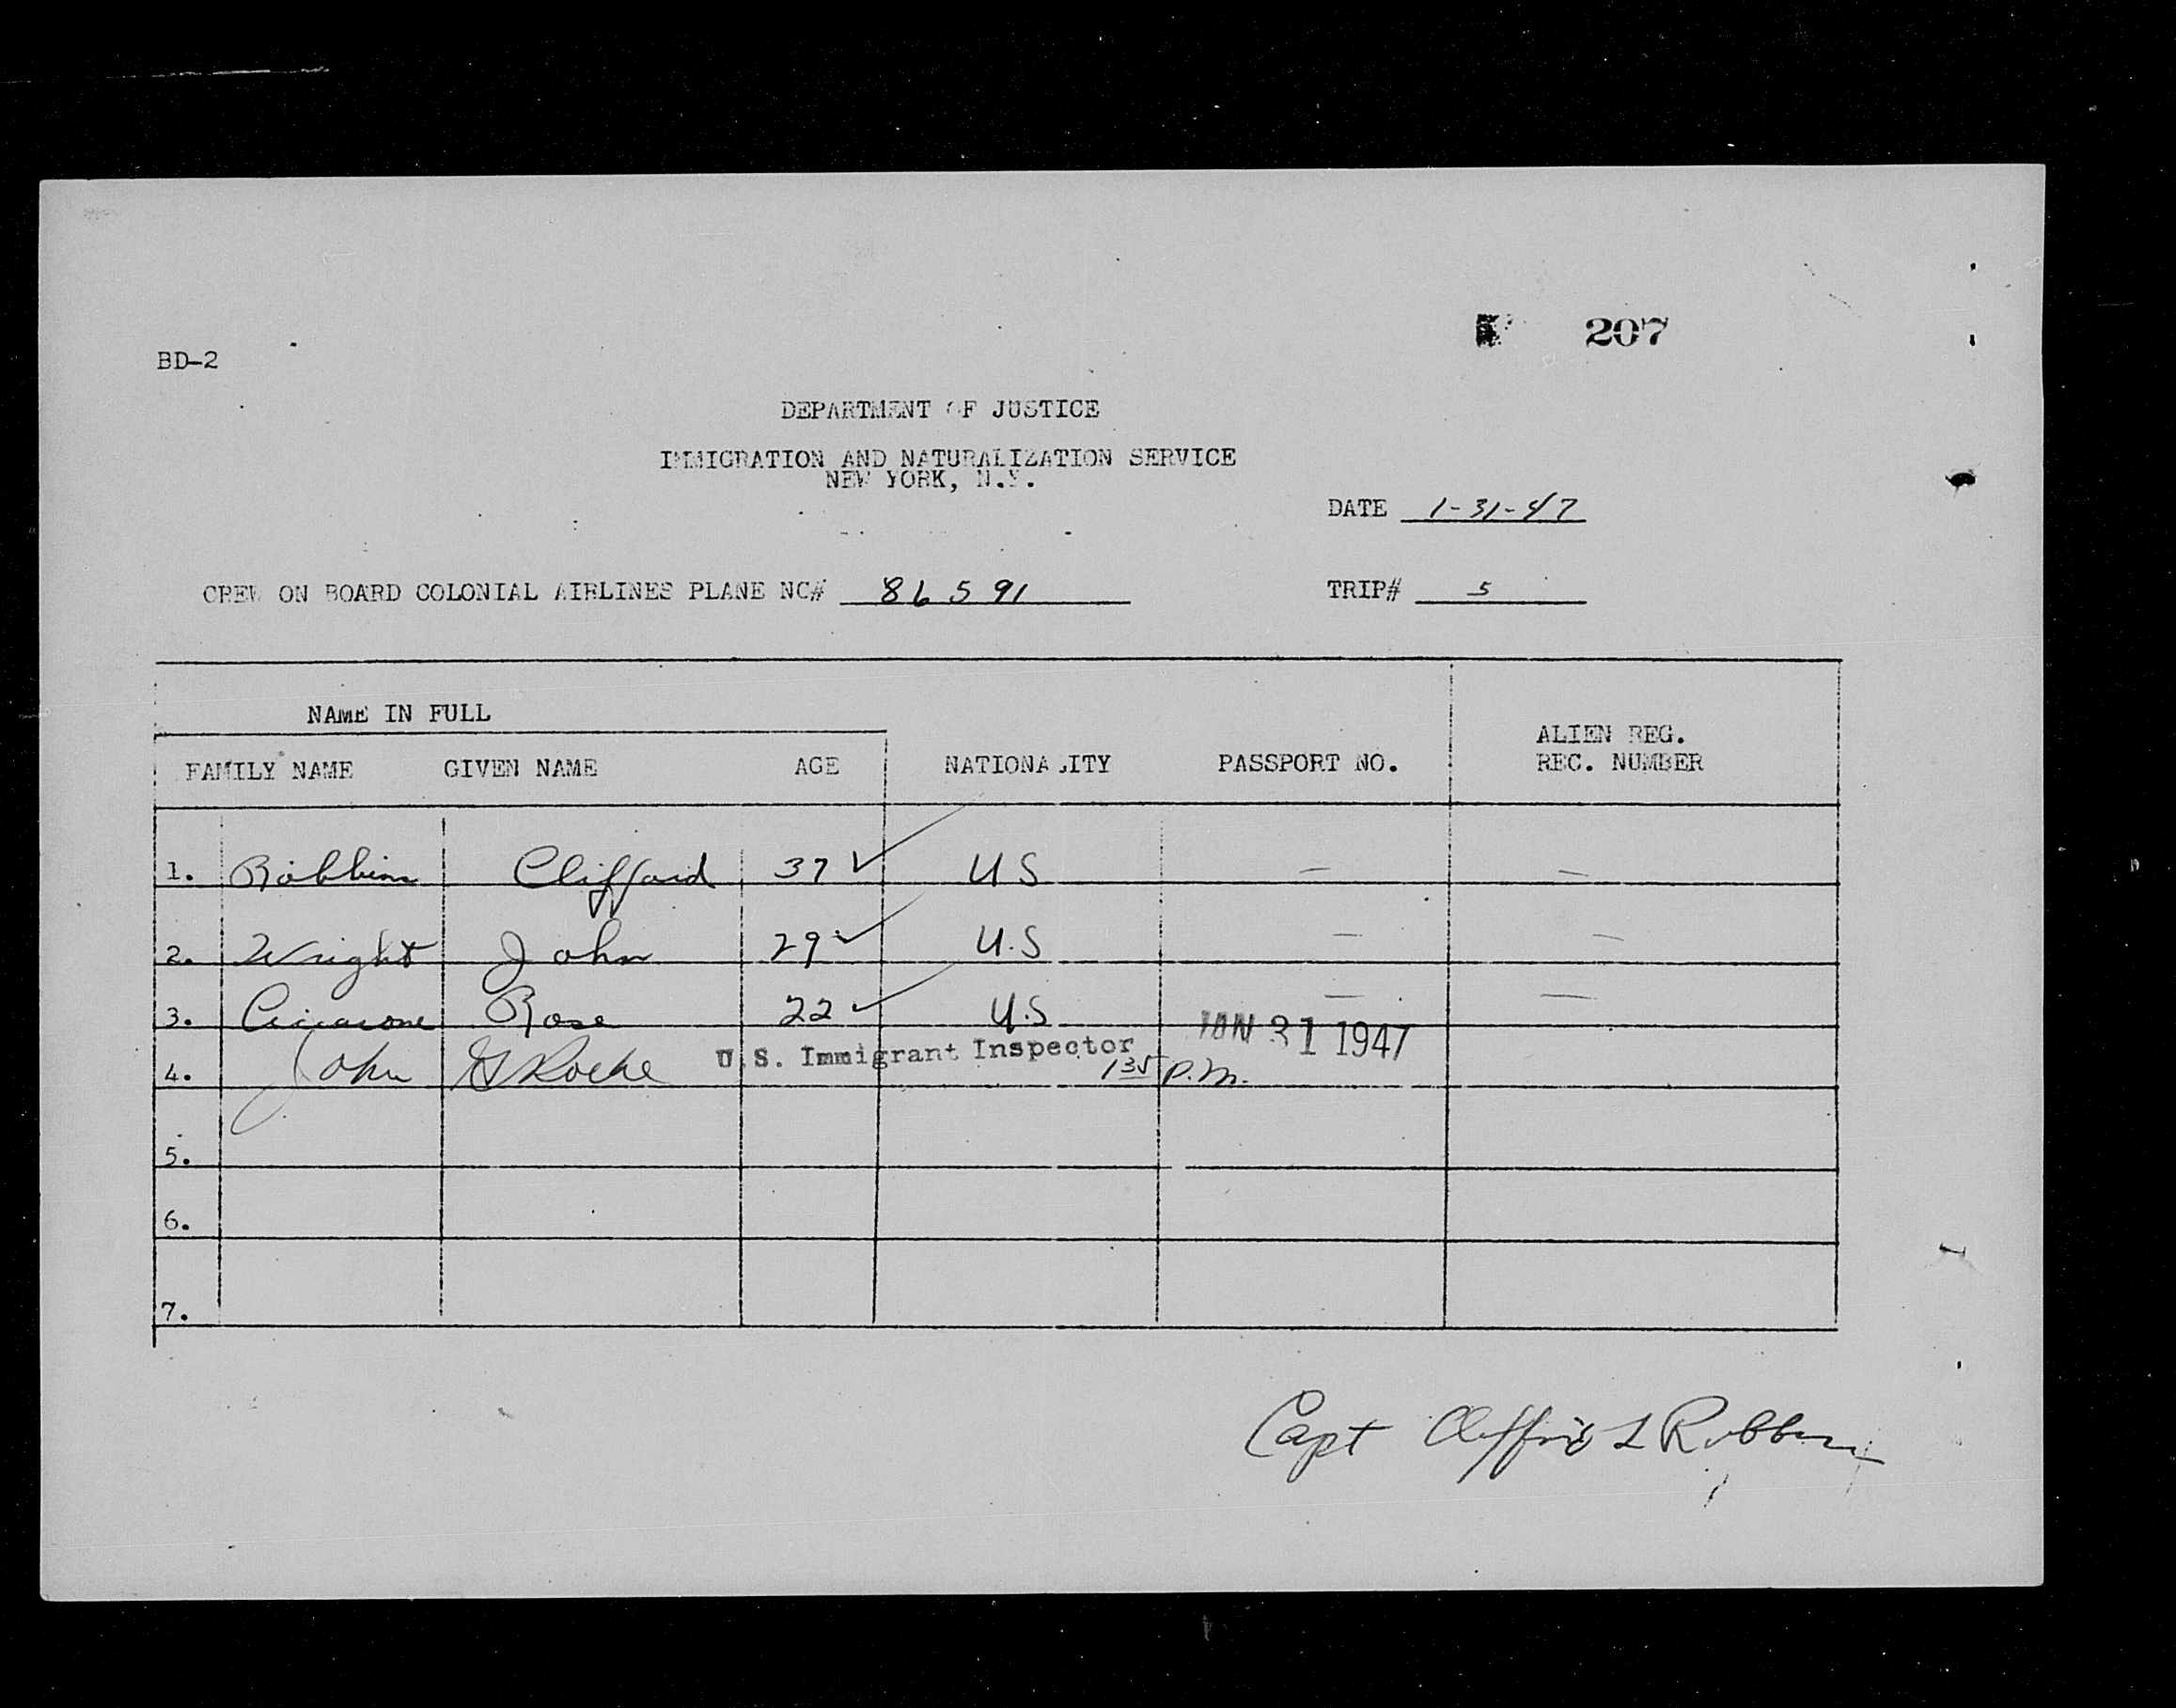 207
BD-2
DEPARTMENT OF JUSTICE
IMMIGRATION AND NATURALIZATION SERVICE
NEW YORK, N.Y.
DATE 1-31-47
CREW ON BOARD COLONIAL AIRLINES PLANE NC# 86591 TRIP# 5
NAME IN FULL
ALIEN REG.
FAMILY NAME GIVEN NAME AGE NATIONALITY PASSPORT NO. REC. NUMBER
1. Robbins Clifford 37 ✓ US — —
2. Wright John 29 ✓ U.S — —
3. Rose 22 ✓ U.S — —
JAN 31 1947
4. John G Roche U.S. Immigrant Inspector 135 P.M.
5.
6.
7.
Capt Clifford L Robbins